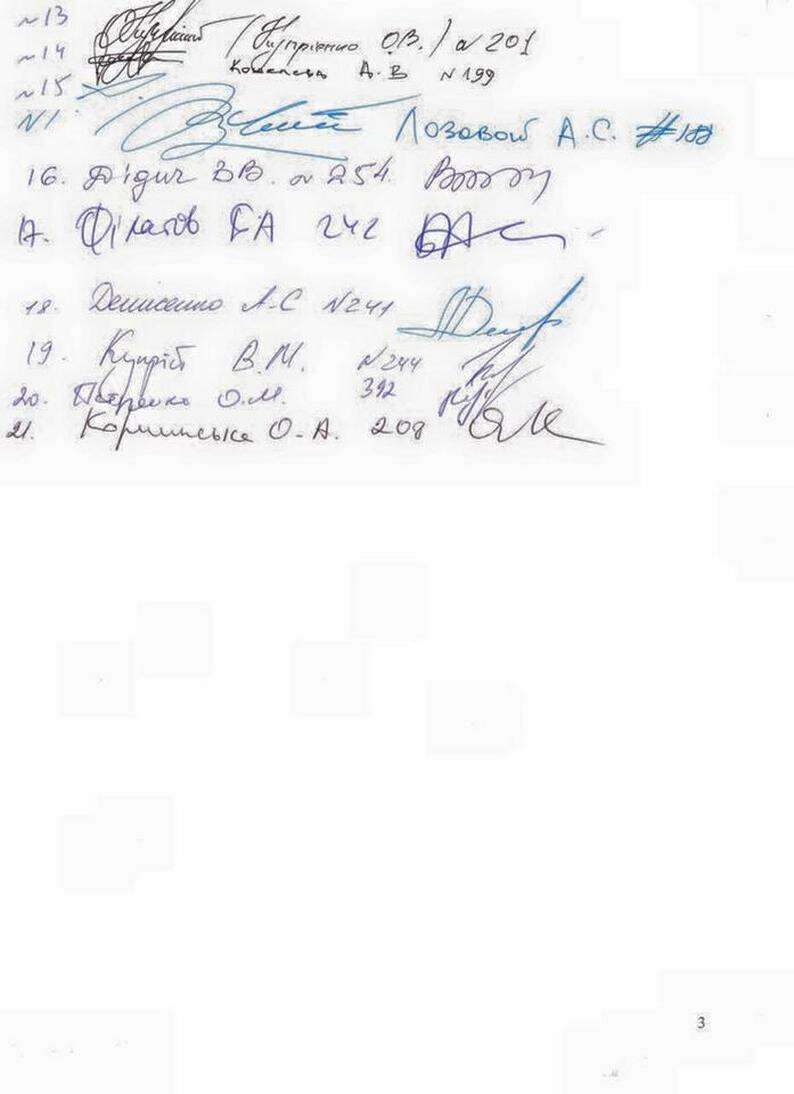 №13 (Купрієнко О.В.) №201
№14 А.В №199
№15
N1 Лозовой А.С. #188
16. Дідич В.В. №254.
17. Філатов Є А 242
18. Денисенко А.С №241
19. Купрій В.М. №244
20. Петренко О.М. 392
21. О.А. 208
3